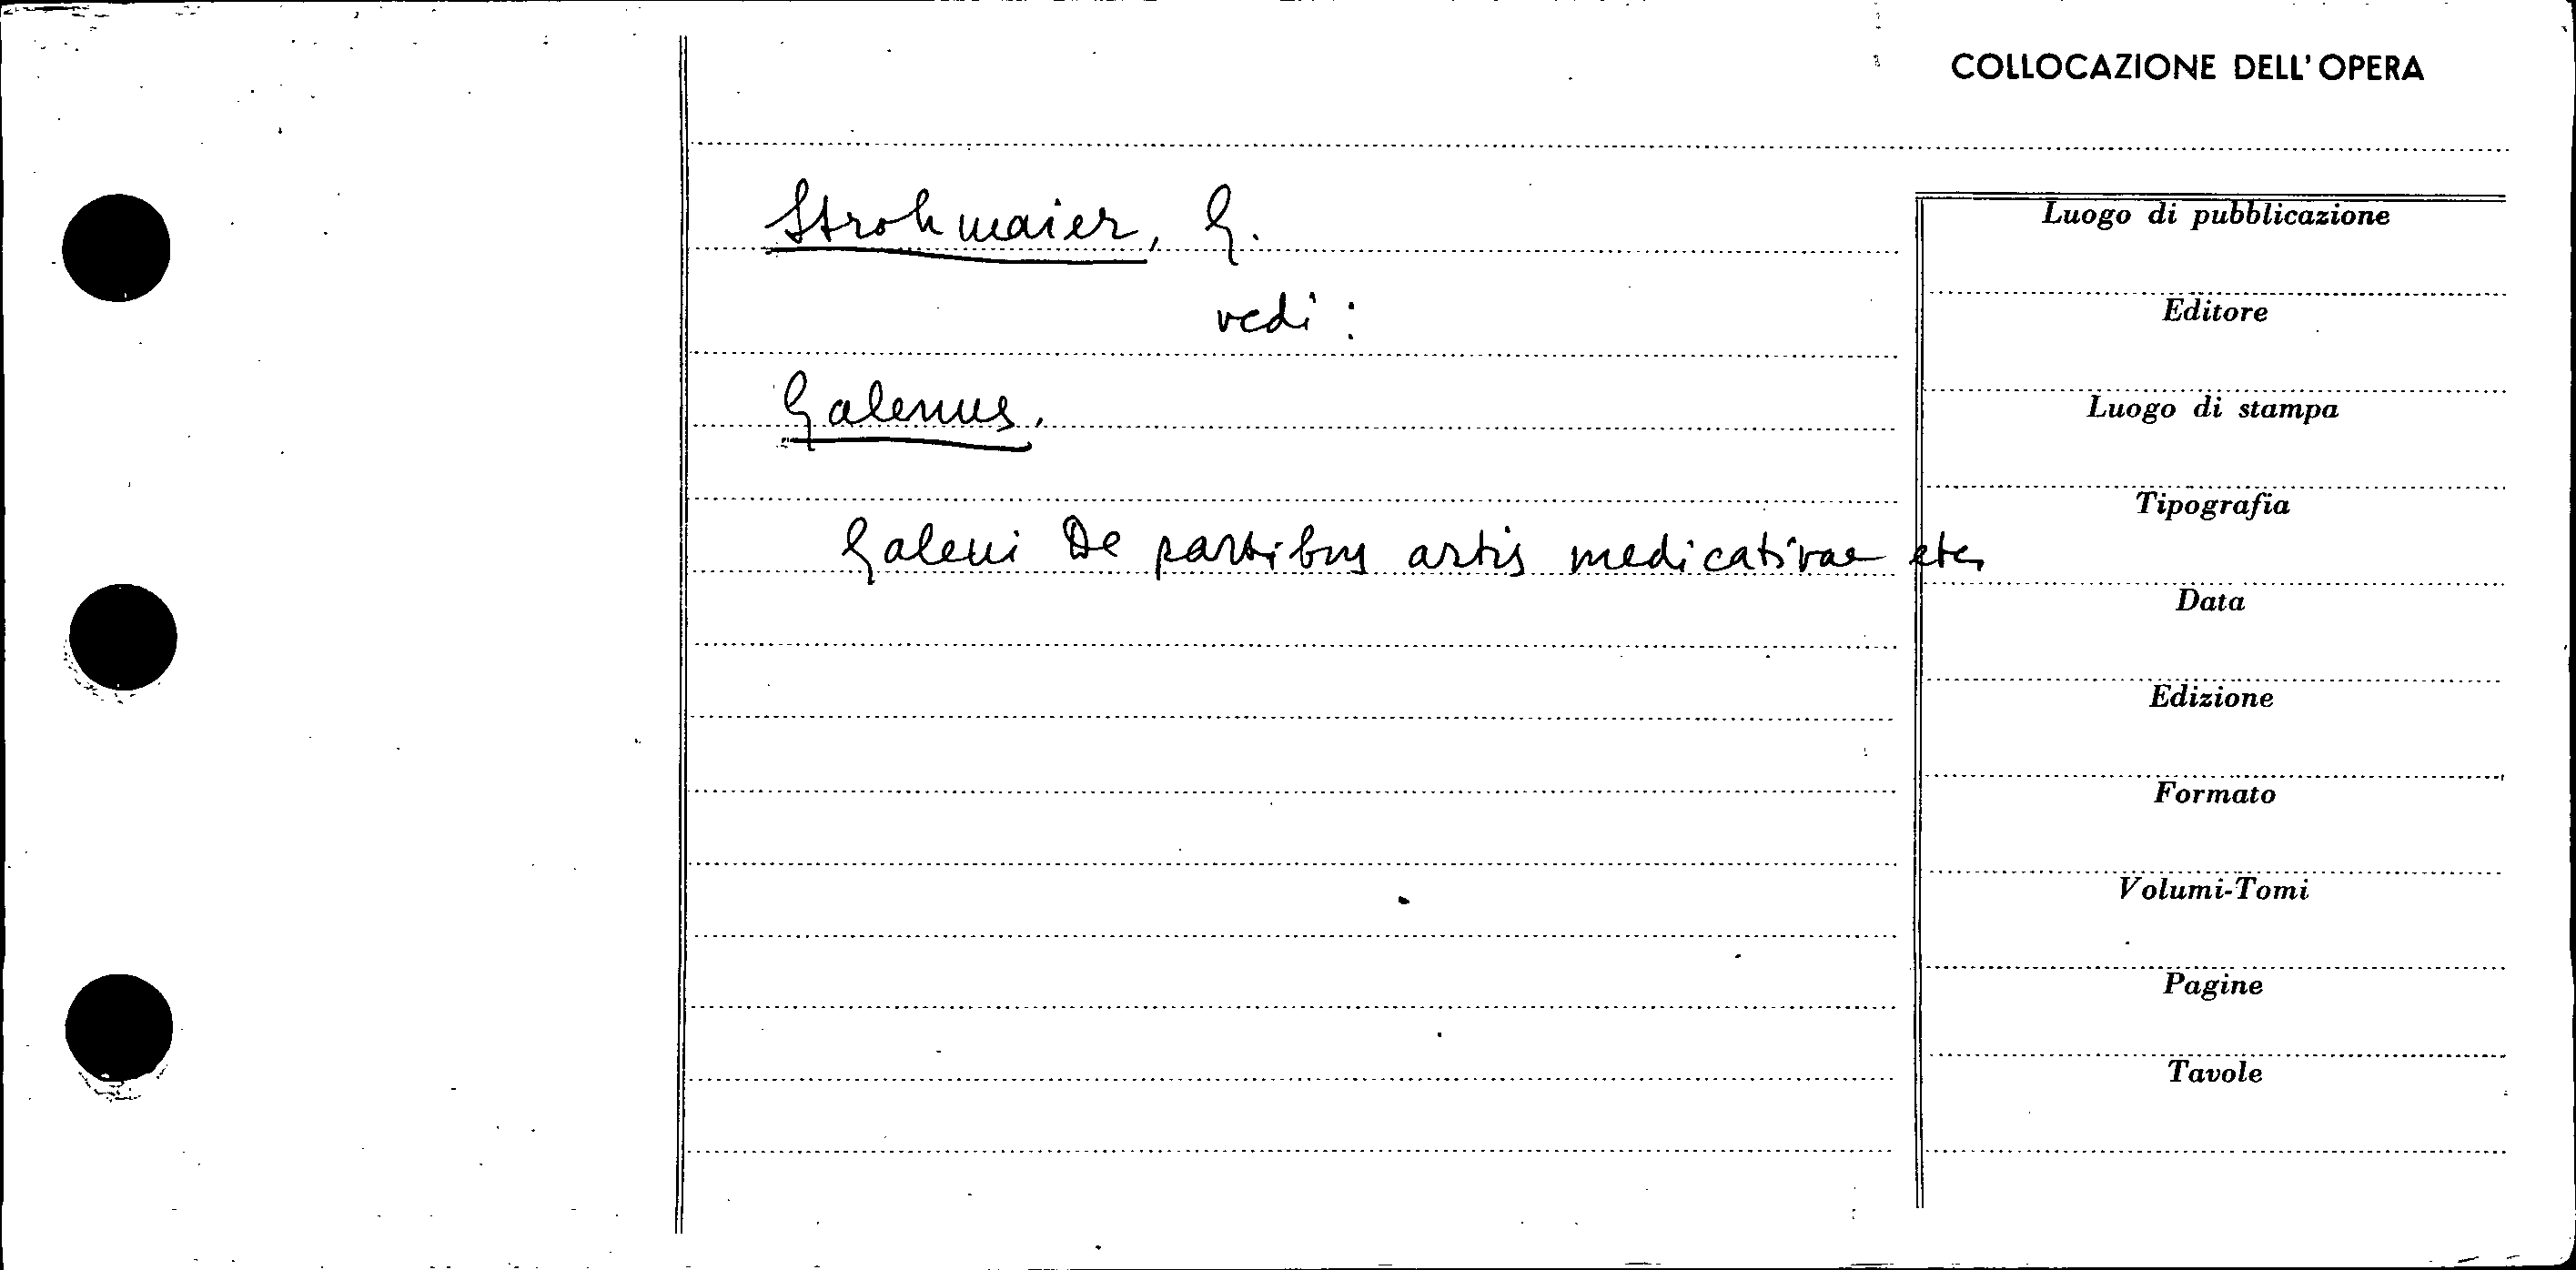 COLLOCAZIONE DELL' OPERA
Strohmaier, G.
vedi :
Galenus.
Galeni De partibus artis medicativae etc.
Luogo di pubblicazione
Editore
Luogo di stampa
Tipografia
Data
Edizione
Formato
Volumi-Tomi
Pagine
Tavole